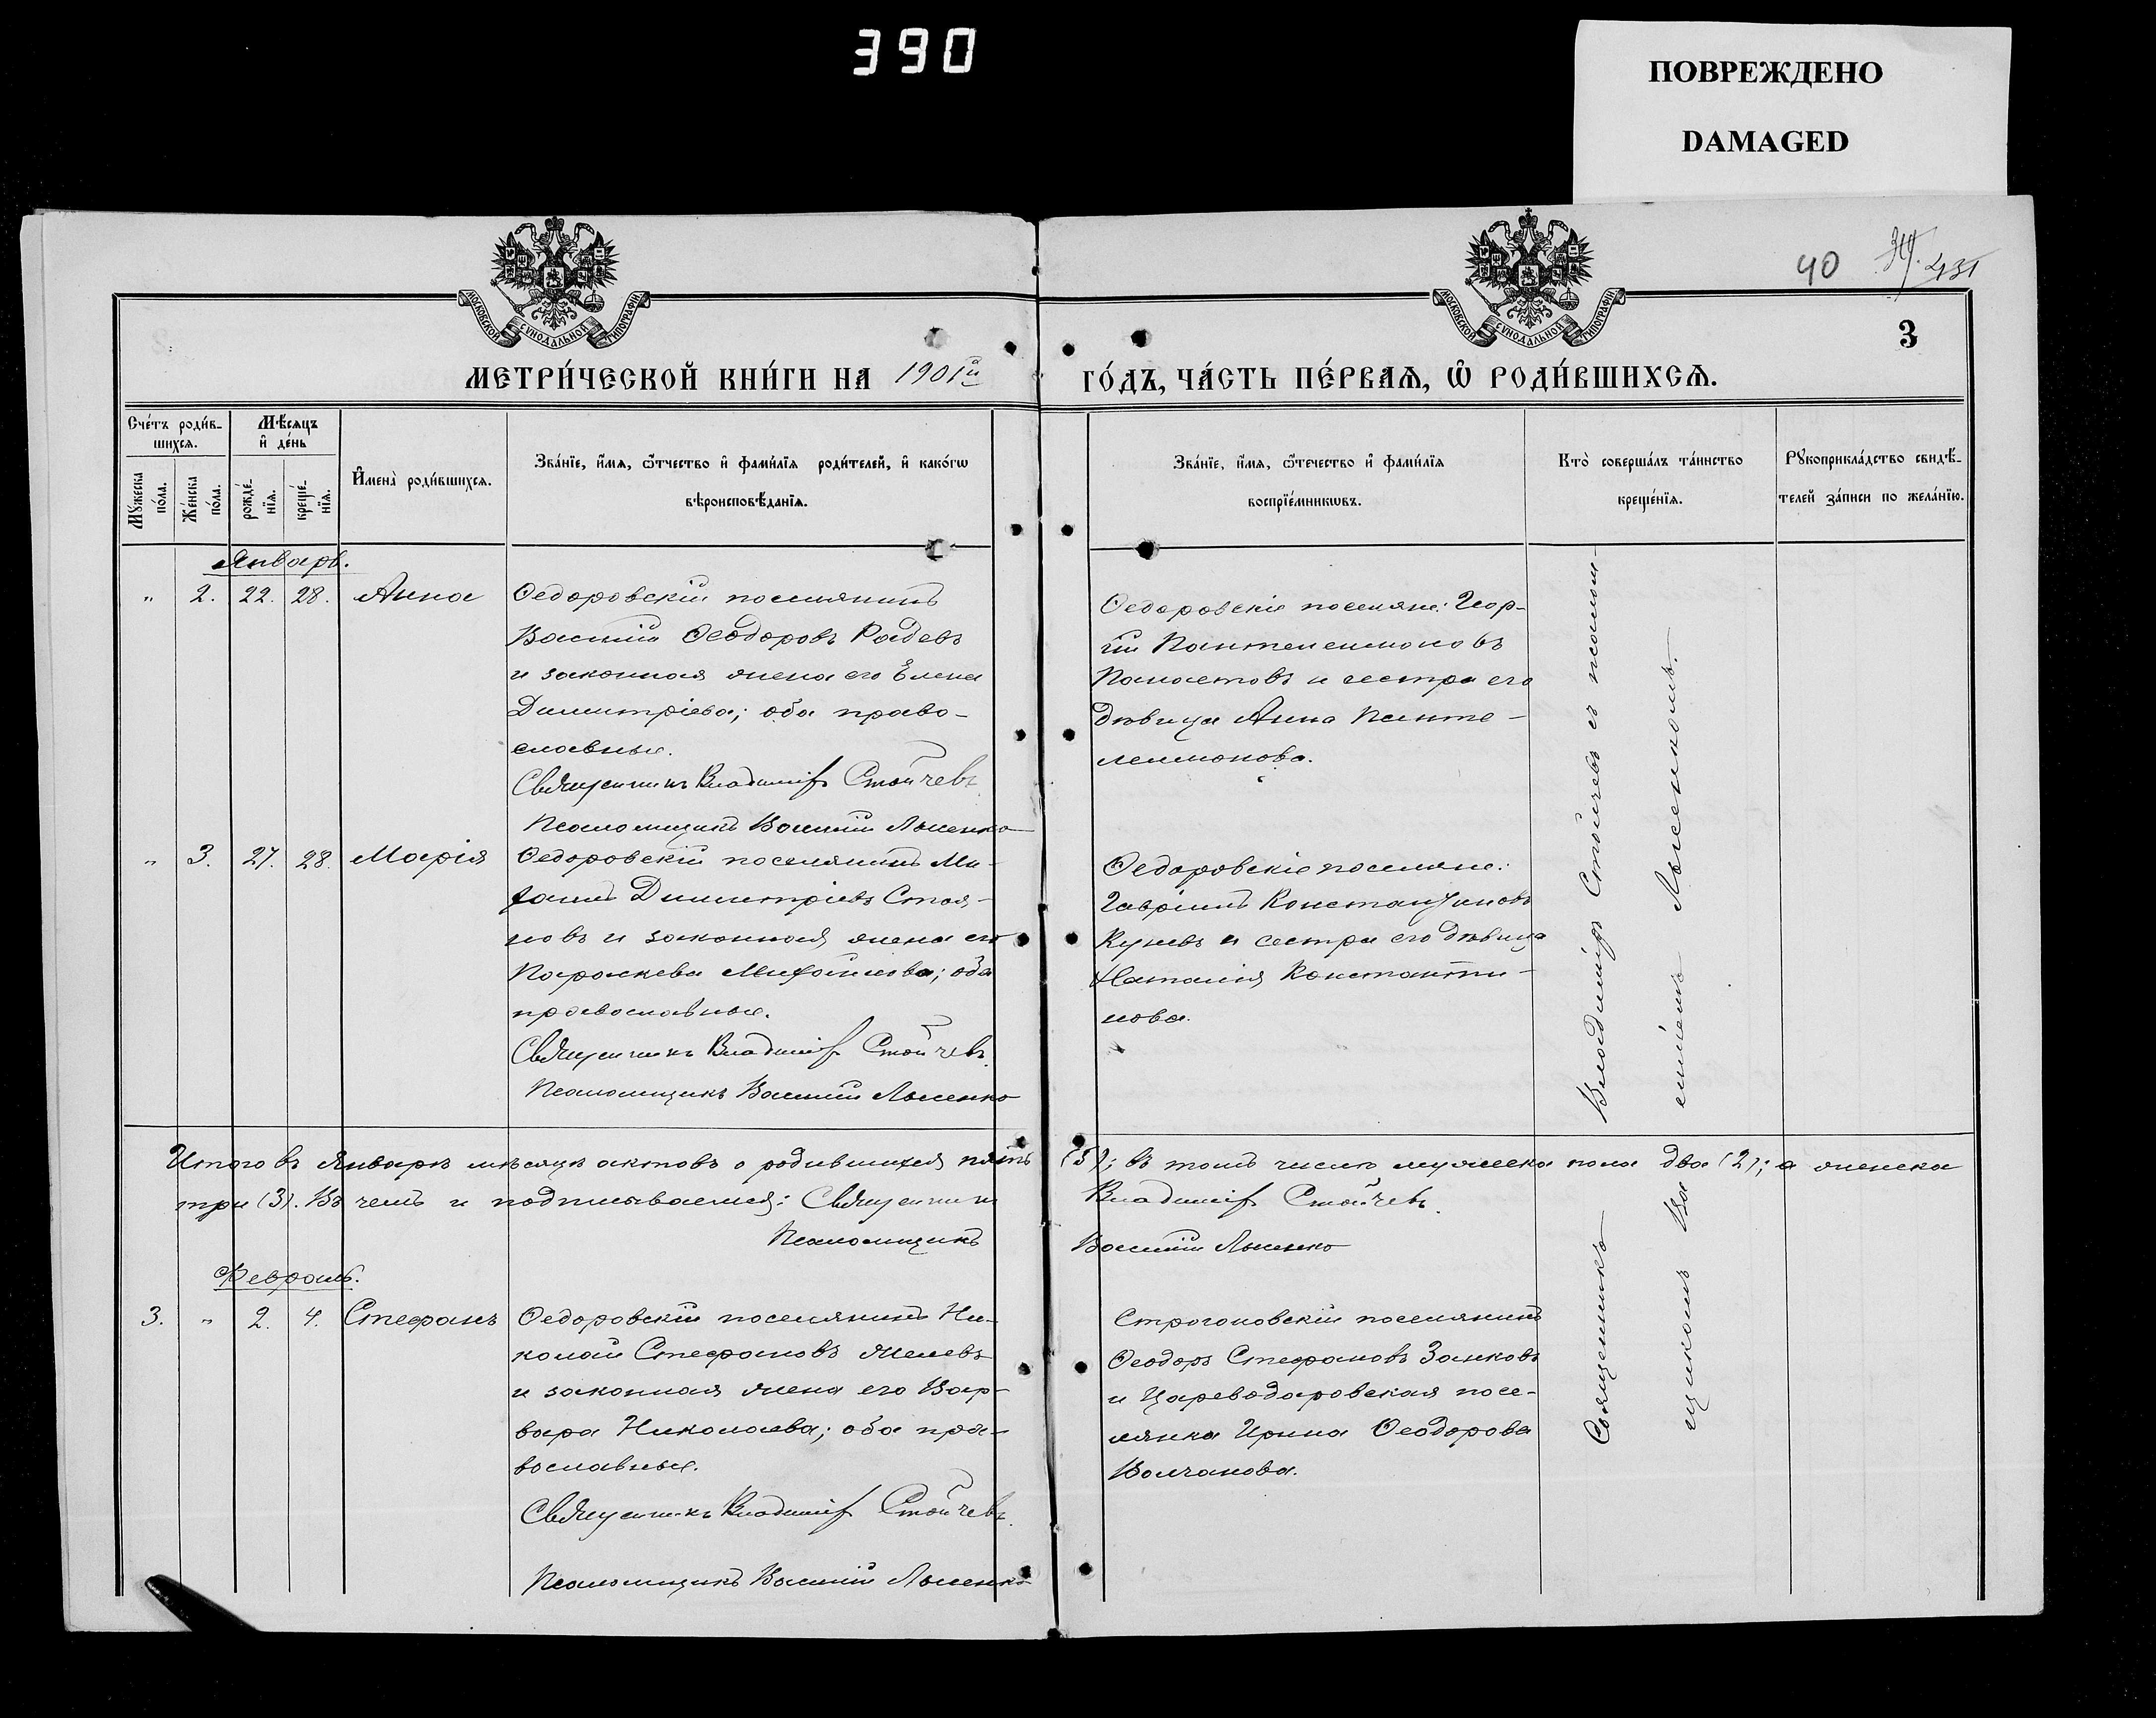 390
ПОВРЕЖДЕНО
DAMAGED
40
431
МОСКОВСКОЙ СѴНОДАЛЬНОЙ ТИПОГРАФІИ
МОСКОВСКОЙ СѴНОДАЛЬНОЙ ТИПОГРАФІИ
3
МЕТРИ́ЧЕСКОЙ КНИ́ГИ НА 1901й ГО́ДЪ, ЧА́СТЬ ПЕ́РВАѦ, Ѡ҆ РОДИ́ВШИХСѦ.
Сче́тъ роди́в-
шихсѧ.
Мꙋ́жеска
по́ла.
Же́нска
по́ла.
Мѣ́сѧцъ
и҆ де́нь
рожде́-
нїѧ.
креще́-
нїѧ.
И҆мена̀ роди́вшихсѧ.
Зва́нїе, и҆́мѧ, ѻ҆́тчество и҆ фами́лїѧ роди́телей, и҆ како́гѡ
вѣроисповѣ́данїѧ.
Зва́нїе, и҆́мѧ, ѻ҆́течество и҆ фами́лїѧ
воспрїе́мникѡвъ.
Кто̀ соверша́лъ та́инство
креще́нїѧ.
Рꙋкоприкла́дство свидѣ́-
телей за́писи по жела́нїю.
Январь.
" 2. 22. 28. Анна
Ѳедоровскій поселянинъ
Василій Ѳеодоровъ Радевъ
и законная жена его Елена
Димитріева; оба право-
славные.
Священникъ Владиміръ Стойчевъ.
Псаломщикъ Василій Лысенко
Ѳедоровскіе поселяне: Геор-
гій Пантелеимоновъ
Панаетовъ и сестра его
дѣвица Анна Панте-
леимонова.
" 3. 27. 28. Марія
Ѳедоровскій поселянинъ Ми-
хаилъ Димитріевъ Стоя-
новъ и законная жена его
Параскева Михайлова; оба
православные.
Священникъ Владиміръ Стойчевъ.
Псаломщикъ Василій Лысенко
Ѳедоровскіе поселяне:
Гавріилъ Константиновъ
Куневъ и сестра его дѣвица
Наталія Константи-
нова.
Итого въ Январѣ мѣсяцѣ актовъ о родившихся пять (5); въ томъ числѣ мужеска пола два (2); а женска
три (3). Въ чемъ и подписываемся: Священникъ Владиміръ Стойчевъ.
Псаломщикъ Василій Лысенко
Февраль.
3. " 2. 4. Стефанъ
Ѳедоровскій поселянинъ Ни-
колай Стефановъ Желевъ
и законная жена его Вар-
вара Николаева; оба пра-
вославные.
Священникъ Владиміръ Стойчевъ.
Псаломщикъ Василій Лысенко
Строгоновскій поселянинъ
Ѳеодоръ Стефановъ Занковъ
и Цареводаровская посе-
лянка Ирина Ѳеодорова
Волчанова.
Священникъ Владиміръ Стойчевъ съ псалом-
щикомъ Василіемъ Лысенкомъ.